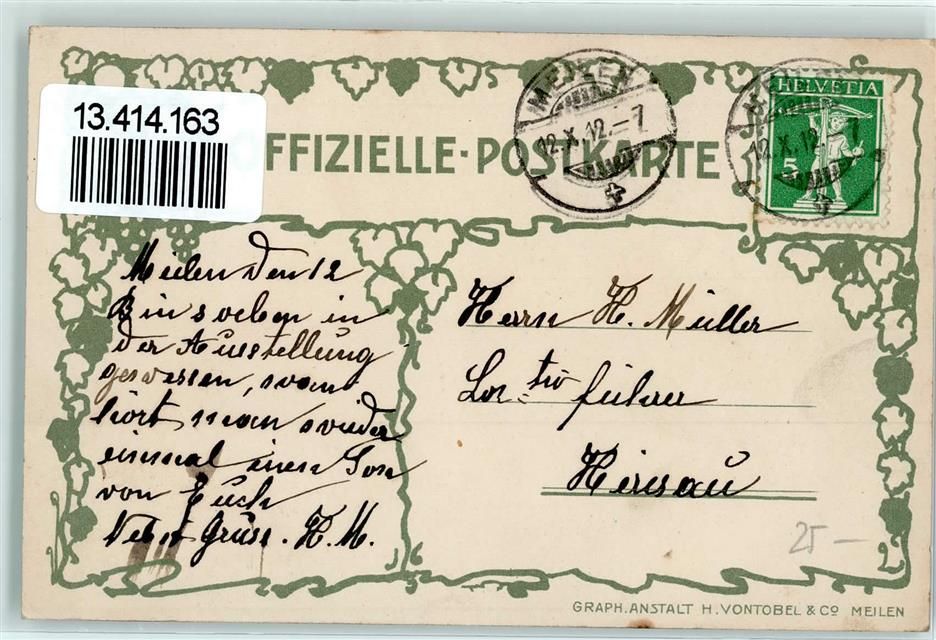 13.414.163
OFFIZIELLE-POSTKARTE
MEILEN
12.X.12.-7
HELVETIA
5
12.X.12.-7
Meilen den 12
Bin soeben in
der Ausstellung
gewessen, wan
hört man wieder
einmal einen Ton
von Euch
Nebst Gruss. H. M.
Herrn H. Müller
führer
Herisau
25 –
GRAPH. ANSTALT H. VONTOBEL & CO MEILEN